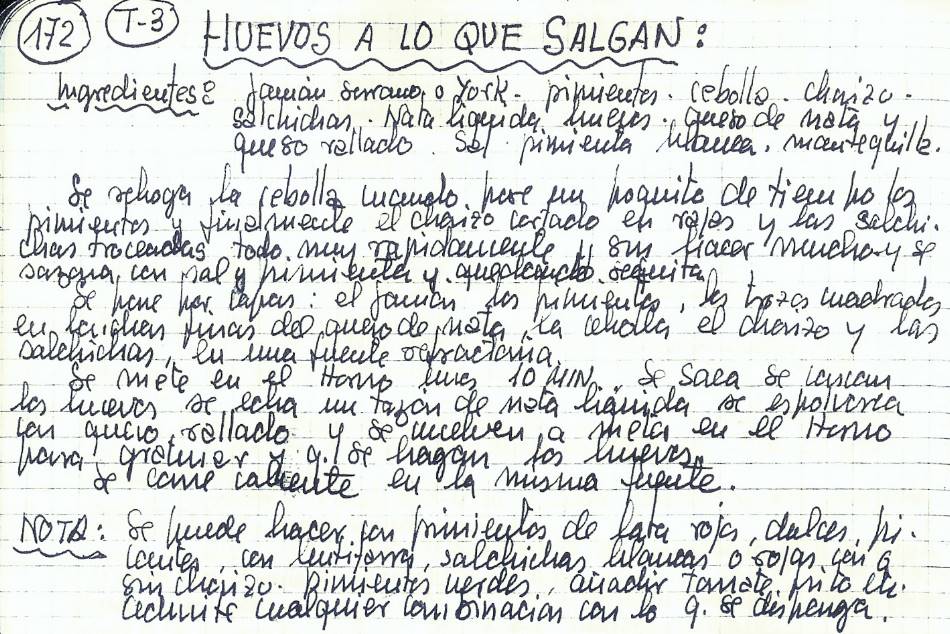 172 T-3 HUEVOS A LO QUE SALGAN:
Ingredientes: Jamón serrano o York. pimientos. cebolla. chorizo.
salchichas. Nata líquida, huevos. queso de nata y
queso rallado. Sal pimienta blanca. mantequilla.
Se rehoga la cebolla cuando pase un poquito de tiempo los
pimientos y finalmente el chorizo cortado en rajas y las salchi-
chas troceadas todo muy rapidamente y sin hacer mucho y se
sazona con sal y pimienta y quedando sequita.
Se pone por capas: el jamón, los pimientos, los trozos cuadrados
en lonchas finas del queso de nata, la cebolla el chorizo y las
salchichas, en una fuente refractaria.
Se mete en el Horno unos 10 MIN. Se saca se cascan
los huevos se echa un tazón de nata líquida se espolvorea
con queso rallado y se vuelven a meter en el Horno
para gratinar y q. se hagan los huevos.
Se come caliente en la misma fuente.
NOTA: Se puede hacer con pimientos de lata rojos, dulces, pi-
cantes, con butifarra, salchichas blancas o rojas con o
sin chorizo. Pimientos verdes, añadir tomate frito etc.
admite cualquier combinación con lo q. se disponga.